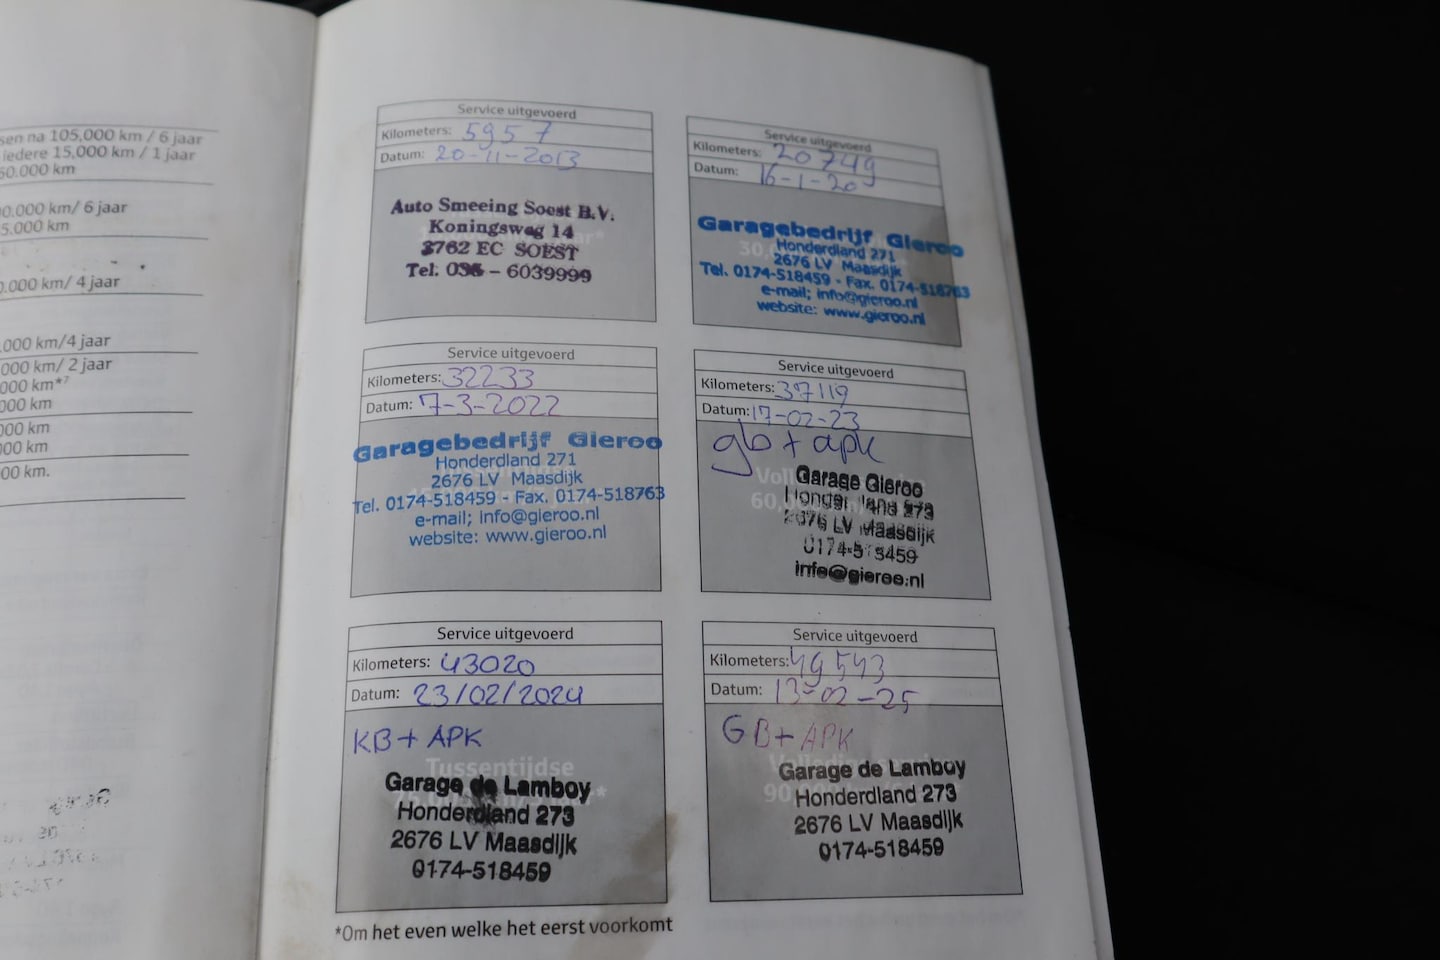 sen na 105,000 km / 6 jaar
iedere 15,000 km / 1 jaar
60.000 km
0.000 km/ 6 jaar
5.000 km
0.000 km/ 4 jaar
000 km/4 jaar
000 km/ 2 jaar
000 km*⁷
000 km
000 km
000 km
00 km.
Service uitgevoerd
Kilometers: 5957
Datum: 20-11-2013
Auto Smeeing Soest B.V.
Koningsweg 14
3762 EC SOEST
Tel. 035 - 6039999
Service uitgevoerd
Kilometers: 20749
Datum: 16-1-20
Garagebedrijf Gieroo
Honderdland 271
2676 LV Maasdijk
Tel. 0174-518459 - Fax. 0174-518763
e-mail; info@gieroo.nl
website: www.gieroo.nl
Service uitgevoerd
Kilometers: 32233
Datum: 7-3-2022
Garagebedrijf Gieroo
Honderdland 271
2676 LV Maasdijk
Tel. 0174-518459 - Fax. 0174-518763
e-mail; info@gieroo.nl
website: www.gieroo.nl
Service uitgevoerd
Kilometers: 37119
Datum: 17-02-23
gb + apk
Garage Gieroo
273
2676 LV Maasdijk
info@gieroo.nl
Service uitgevoerd
Kilometers: 43020
Datum: 23/02/2024
KB + APK
Tussentijdse
Garage de Lamboy
Honderdland 273
2676 LV Maasdijk
0174-518459
Service uitgevoerd
Kilometers: 49543
Datum: 13-02-25
GB + APK
Garage de Lamboy
Honderdland 273
2676 LV Maasdijk
0174-518459
*Om het even welke het eerst voorkomt